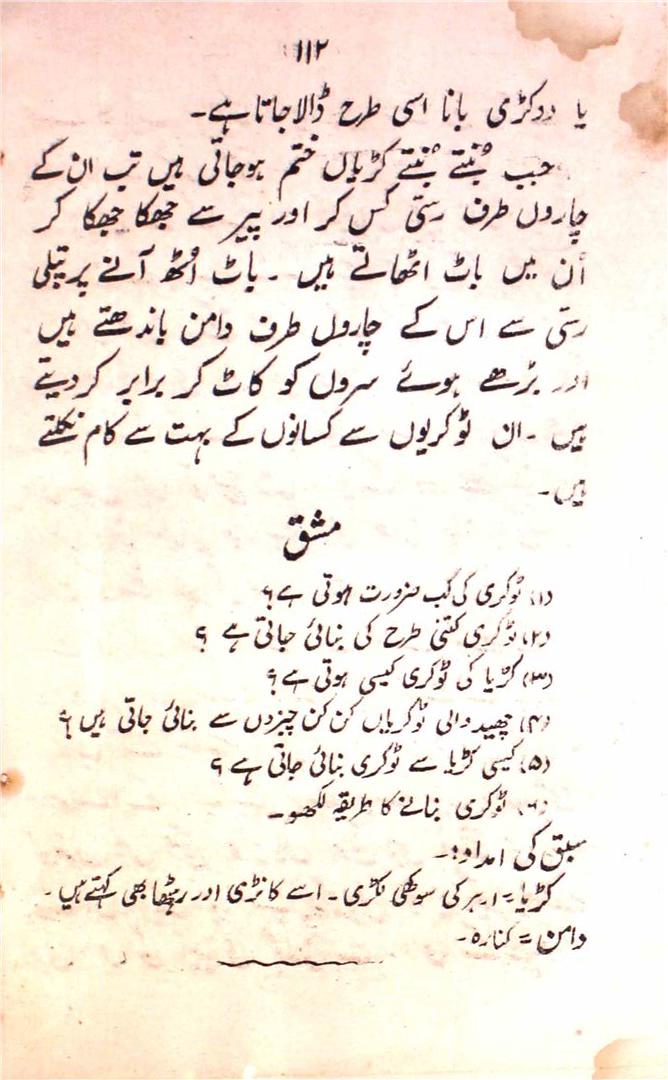 ۱۱۲
یا دوکڑی بانا اسی طرح ڈالا جاتا ہے۔
جب بُنتے بُنتے کڑیاں ختم ہوجاتی ہیں تب ان کے
چاروں طرف رسّی کس کر اور پیر سے جھکا جھکا کر
اُن میں باٹ اٹھاتے ہیں ۔ باٹ اُٹھ آنے پر پتلی
رسّی سے اس کے چاروں طرف دامن باندھتے ہیں
اور بڑھے ہوئے سروں کو کاٹ کر برابر کر دیتے
ہیں ۔ ان ٹوکریوں سے کسانوں کے بہت سے کام نکلتے
ہیں۔
مشق
(۱) ٹوکری کی کب ضرورت ہوتی ہے؟
(۲) ٹوکری کتنی طرح کی بنائی جاتی ہے ؟
(۳) کڑیا کی ٹوکری کیسی ہوتی ہے؟
(۴) چھید والی ٹوکریاں کن کن چیزوں سے بنائی جاتی ہیں ؟
(۵) کیسی کڑیا سے ٹوکری بنائی جاتی ہے ؟
(۶) ٹوکری بنانے کا طریقہ لکھو۔
سبق کی امداد:۔
کڑیا = ارہر کی سوکھی لکڑی ۔ اسے کانڑی اور رہٹھا بھی کہتے ہیں ۔
دامن = کنارہ ۔